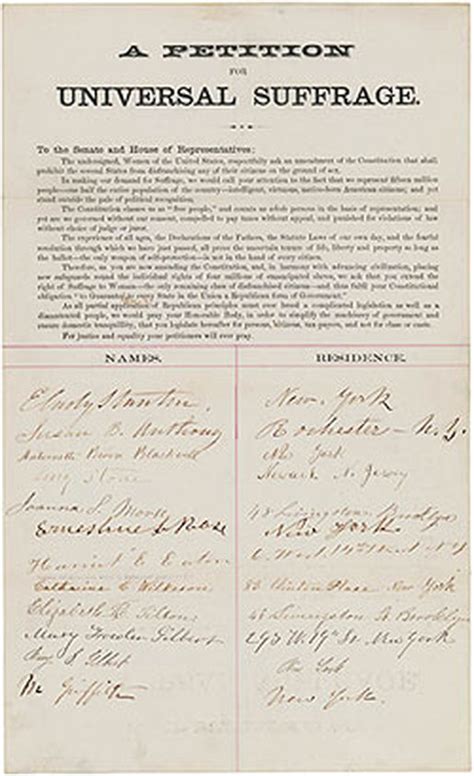 A PETITION
FOR
UNIVERSAL SUFFRAGE.
To the Senate and House of Representatives:
The undersigned, Women of the United States, respectfully ask an amendment of the Constitution that shall
prohibit the several States from disfranchising any of their citizens on the ground of sex.
In making our demand for Suffrage, we would call your attention to the fact that we represent fifteen million
people—one half the entire population of the country—intelligent, virtuous, native-born American citizens; and yet
stand outside the pale of political recognition.
The Constitution classes us as "free people," and counts us whole persons in the basis of representation; and
yet are we governed without our consent, compelled to pay taxes without appeal, and punished for violations of law
without choice of judge or juror.
The experience of all ages, the Declarations of the Fathers, the Statute Laws of our own day, and the fearful
revolution through which we have just passed, all prove the uncertain tenure of life, liberty and property so long as
the ballot—the only weapon of self-protection—is not in the hand of every citizen.
Therefore, as you are now amending the Constitution, and, in harmony with advancing civilization, placing
new safeguards round the individual rights of four millions of emancipated slaves, we ask that you extend the
right of Suffrage to Woman—the only remaining class of disfranchised citizens—and thus fulfil your Constitutional
obligation "to Guarantee to every State in the Union a Republican form of Government."
As all partial application of Republican principles must ever breed a complicated legislation as well as a
discontented people, we would pray your Honorable Body, in order to simplify the machinery of government and
ensure domestic tranquillity, that you legislate hereafter for persons, citizens, tax-payers, and not for class or caste.
For justice and equality your petitioners will ever pray.
NAMES. RESIDENCE.
E Cady Stanton, New York
Susan B. Anthony Rochester - N.Y.
Antoinette Brown Blackwell New York
Lucy Stone Newark N. Jersey
Joanna S. Morse 48 Livingston Brooklyn
Ernestine L Rose New York
Harriet E. Eaton 6. West 14th Street N.Y.
Catharine C. Wilkeson 83 Clinton Place New York
Elizabeth R. Tilton 48 Livingston St. Brooklyn
Mary Fowler Gilbert 293 W. 19th St. New York
Gilbert New York
M. Griffith New York.